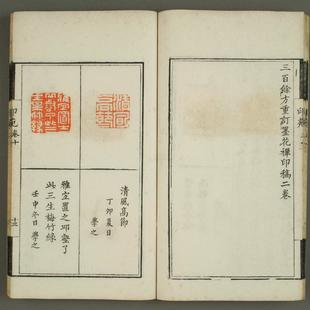 三百餘方重訂墨花禪印稿二卷
清風高節
丁卯夏日
學之
雅宜置之邱壑了
此三生梅竹緣
壬申冬日學之
卷十